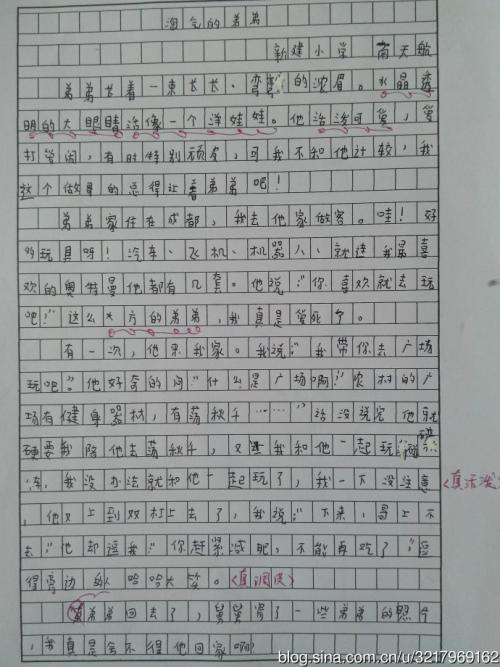 淘气的弟弟
新建小学 南天航
弟弟长着一束长长、弯弯的浓眉。水晶透
明的大眼睛活像一个洋娃娃。他活泼可爱，爱
打爱闹，有时特别顽皮，可我不和他计较，我
这个做哥的总得让着弟弟吧！
弟弟家住在成都，我去他家做客。哇！好
多玩具呀！汽车、飞机、机器人、就连我最喜
欢的奥特曼他都有几套。他说：“你喜欢就去玩
吧！”这么大方的弟弟，我真是爱死了。
有一次，他来我家。我说：“我带你去广场
玩吧？”他好奇的问：“什么是广场啊？”农村的广
场有健身器材，有荡秋千……”话没说完他就
硬要我陪他去荡秋千，又逼我和他一起玩“碰
车，我没办法就和他一起玩了，我一下没注意
，他又上到双杠上去了，我说：“下来，哥上不
去！”他却逗我：“你赶紧减肥，不能再吃了”
得旁边 哈哈大笑。
弟弟回去了，舅舅寄了一些弟弟的照片
，我真是舍不得他回家啊！
〈真活泼〉
〈真调皮〉
blog.sina.com.cn/u/3217969162